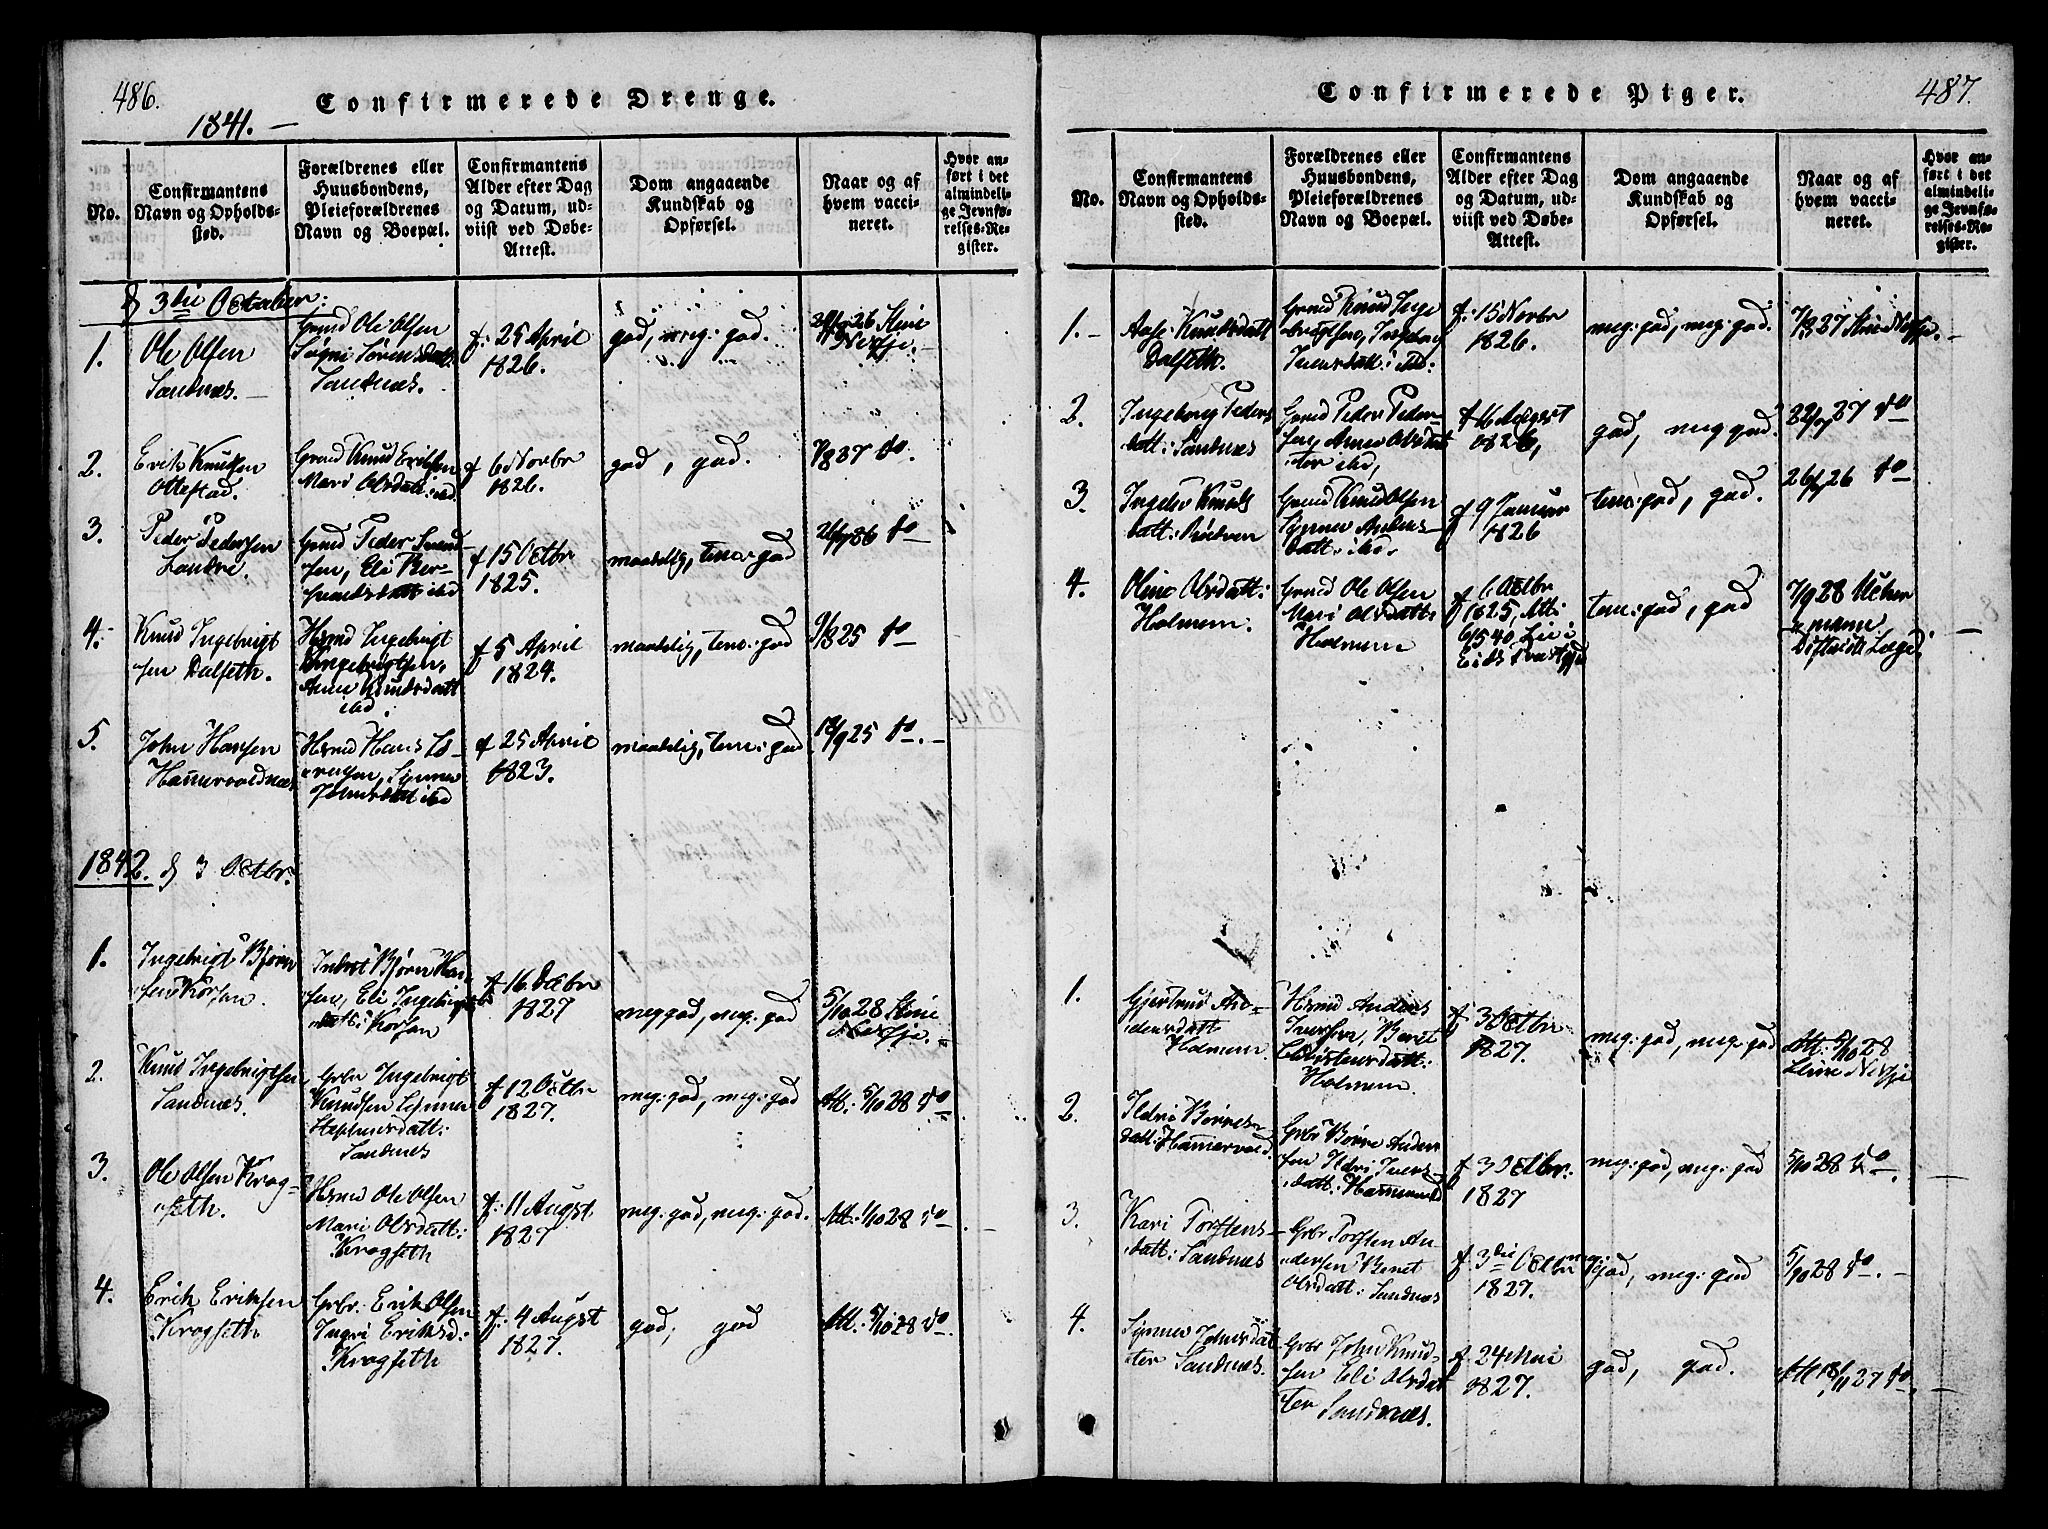 486.
Confirmerede Drenge.
1841. –
No.
Confirmantens
Navn og Opholds-
sted.
Forældrenes eller
Huusbondens,
Pleieforældrenes
Navn og Boepæl.
Confirmantens
Alder efter Dag
og Datum, ud-
viist ved Døbe-
Attest.
Dom angaaende
Kundskab og
Opførsel.
Naar og af
hvem vacci-
neret.
Hvor an-
ført i det
almindeli-
ge Jevnfø-
relses-Re-
gister.
3die October:
1.
Ole Olsen
Sandnæs.
Grmd Ole Olsen
Søgni Sørensdatt:
Sandnæs.
f: 25 April
1826.
god, meg: god.
26 Stine
Nesje.
2.
Erik Knudsen
Ottestad.
Grmd Knud Eriksen
Mari Olsdatt: ibd
f 6 Novbr
1826.
god, god.
do.
3.
Peder Pedersen
Grmd Peder
sen, Eli
datt ibd
f 15 Octbr
1825.
maadelig, tem: god
do
4.
Knud Ingebrigt
sen Dalseth.
Hsmd Ingebrigt
Ingebrigtsen,
Anne Knudsdatt
ibd.
f 5 April
1824.
maadelig, tem: god
9/8 25 do
5.
John Hansen
Hammervoldnæs
Hsmd Hans
Synnev
Johnsdatt ibd
f 25 April
1823.
maadelig, tem: god
12/9 25 do. –
1842. d 3 Octbr.
1.
Ingebrigt Bjørn
sen Korsen.
Bjørn Han
sen, Eli Ingebrigts
datt: Korsen
f 16 Decbr
1827
meg god, meg: god
5/10 28 Stine
Nesje. –
2.
Knud Ingebrigtsen
Sandnæs.
Grbr Ingebrigt
Knudsen Synnev
datt:
Sandnæs
f 12 Octbr
1827.
meg: god, meg: god
Att: 5/10 28 do
3.
Ole Olsen Krog-
seth.
Hsmd Ole Olsen
Mari Olsdatt:
Krogseth
f: 11 August
1827
meg: god, meg: god.
Att: 1/10 28 do
4.
Erik Eriksen
Krogseth
Grbr: Erik Olsen
Ingri Eriksd:
Krogseth
f: 4 Augst
1827.
god, god
Att: 5/10 28 do
Confirmerede Piger.
487.
No.
Confirmantens
Navn og Opholds-
sted.
Forældrenes eller
Huusbondens,
Pleieforældrenes
Navn og Boepæl.
Confirmantens
Alder efter Dag
og Datum, ud-
viist ved Døbe-
Attest.
Dom angaaende
Kundskab og
Opførsel.
Naar og af
hvem vacci-
neret.
Hvor an-
ført i det
almindeli-
ge Jevnfø-
relses-Re-
gister.
1. –
Knudsdatt
Dalseth.
Grmd Knud Inge
brigtsen, Ingeborg
Iversdatt: ibd:
f: 15 Novbr
1826.
meg: god, meg: god.
7/8 27 Stine Nesje.
2.
Ingeborg Peders
datt: Sandnæs
Grmd Peder Peder-
sen, Anne Olsdat
ter ibd,
f 16 August
1826,
god, meg god.
27 do
3.
Knuds
datt:
Grmd Knud Olsen
Synnev Anders
datt: ibd.
f 9 Januar
1826
tem: god, god.
26 do
4.
Oline Olsdatt:
Holmem.
Grmd Ole Olsen
Mari Olsdatt:
Holmem
f 6 Octbr
1825, Att:
Eids Præstgjd
tem: god, god
7/9 28
mann
Distrikt Læge
1.
Gjertrud An-
dersdatt
Holmem.
Hsmd Anders
Iversen, Berit
Christensdatt:
Holmem
f 3 Octbr
1827.
meg: god, meg: god
Att: 5/10 28
Stine Nesje
2.
Ildri Børres-
datt: Hammervold.
Grbr Børre Ander
sen Ildri Ivers-
datt: Hammervold
f 3 Octbr.
1827
meg: god, meg: god
5/10 28 do.
3.
Kari Torstens-
datt: Sandnæs
Grbr Torsten An-
dersen Beret
Olsdatt: Sandnæs
f 3die Octbr
1827.
meg: god, meg: god
5/10 28 do. –
4.
Synnev Johnsdat
ter Sandnæs.
Grbr John Knud-
sen Eli Olsdat
ter Sandnæs.
f. 24 Mai
1827.
god, god.
Att 18/11 27 do.